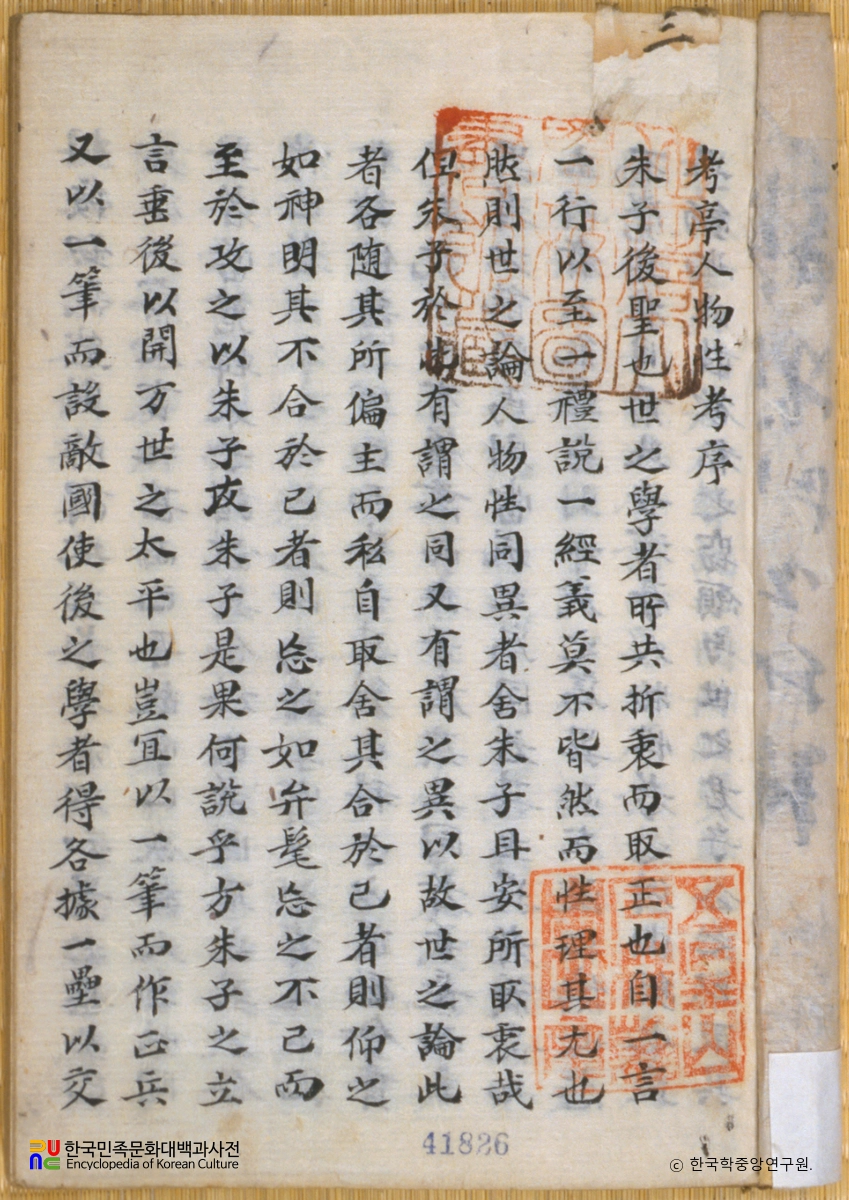 三
考亭人物性考序
朱子後聖也世之學者所共折衷而取正也自一言
一行以至一禮說一經義莫不皆然而性理其尤也
然則世之論人物性同異者舍朱子且安所取衷哉
但朱子於此有謂之同又有謂之異以故世之論此
者各随其所偏主而私自取舍其合於己者則仰之
如神明其不合於己者則忘之如弁髦忘之不已而
至於攻之以朱子攻朱子是果何說乎方朱子之立
言垂後以開万世之太平也豈冝以一筆而作正兵
又以一筆而設敵國使後之學者得各據一壘以交
41826
한국민족문화대백과사전
Encyclopedia of Korean Culture
© 한국학중앙연구원.